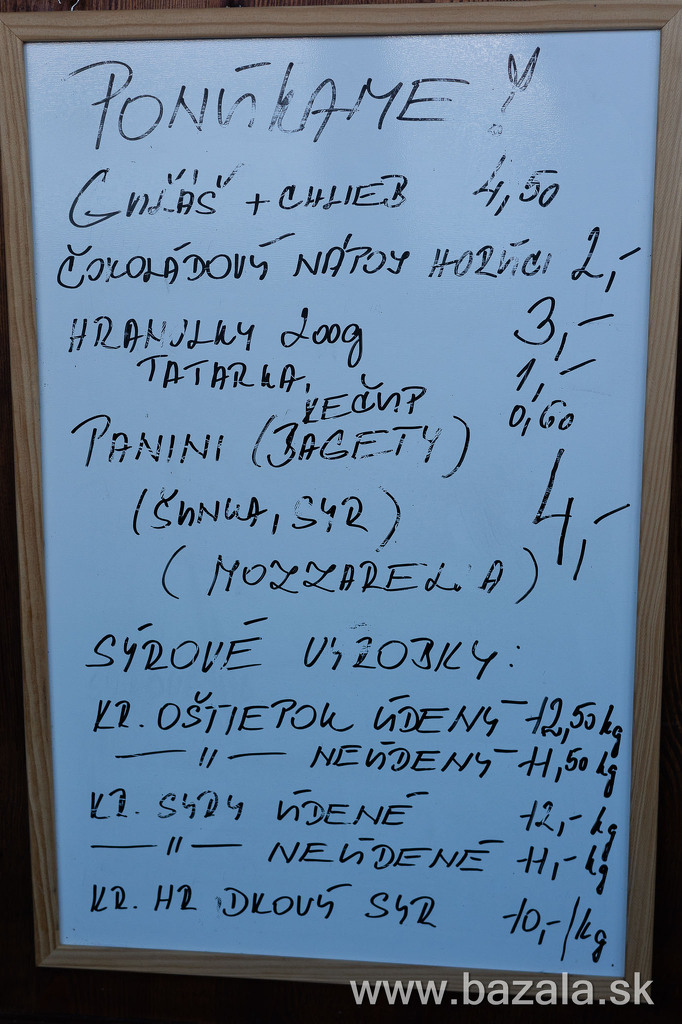 PONÚKAME!
GULÁŠ + CHLIEB 4,50
ČOKOLÁDOVÝ NÁPOJ HORÚCI 2,-
HRANOLKY 200g 3,-
TATARKA, 1,-
KEČUP 0,60
PANINI (BAGETY)
(ŠUNKA, SYR) 4,-
(MOZZARELLA)
SYROVÉ VÝROBKY:
KR. OŠTIEPOK ÚDENÝ - 12,50 kg
— " — NEÚDENÝ - 11,50 kg
KR. SYRY ÚDENÉ 12,- kg
— " — NEÚDENÉ 11,- kg
KR. HR DKOVÝ SYR 10,-/kg
www.bazala.sk